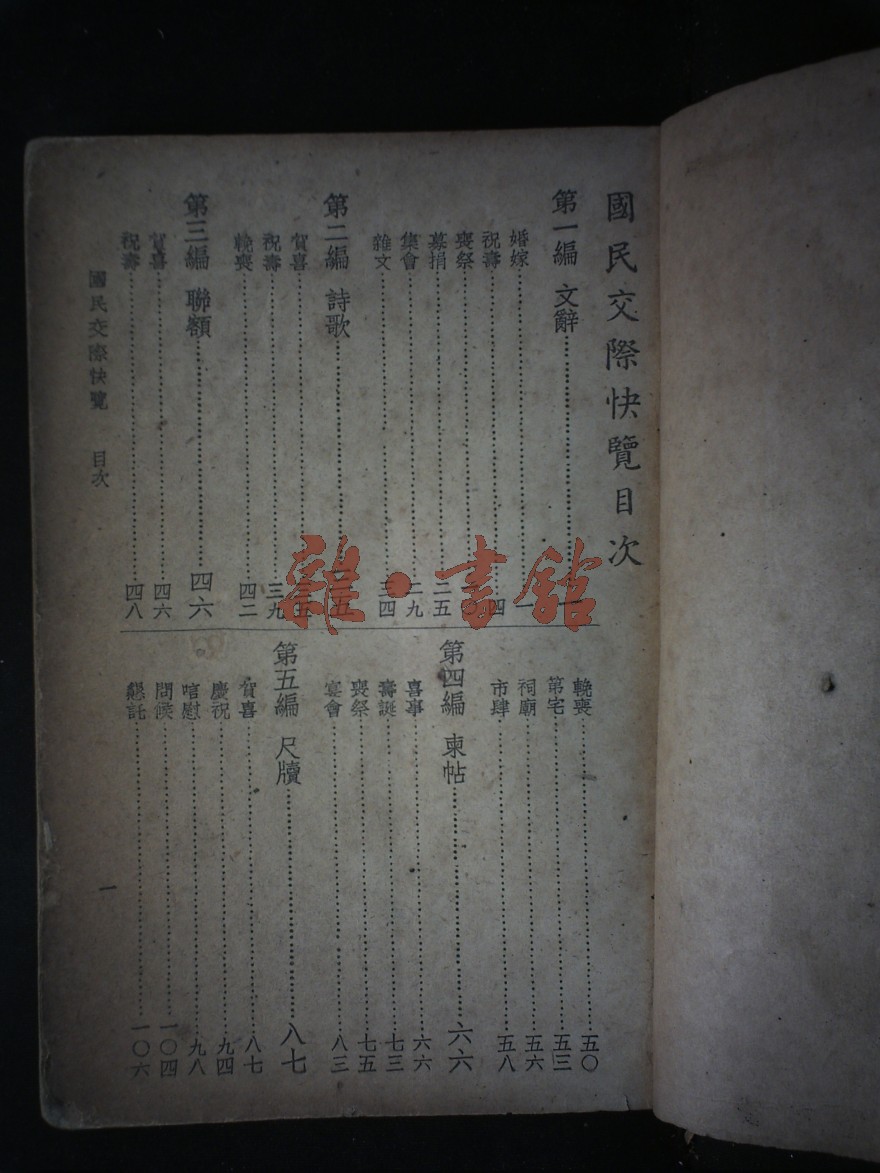 國民交際快覽目次
第一編 文辭……一
婚嫁……一
祝壽……四
喪祭……
募捐……二五
集會……二九
雜文……三四
第二編 詩歌……三五
賀喜……三五
祝壽……三九
輓喪……四二
第三編 聯額……四六
賀喜……四六
祝壽……四八
輓喪……五〇
第宅……五三
祠廟……五六
市肆……五八
第四編 柬帖……六六
喜事……六六
壽誕……七三
喪祭……七五
宴會……八三
第五編 尺牘……八七
賀喜……八七
慶祝……九四
唁慰……九八
問候……一〇四
懇託……一〇六
國民交際快覽 目次
一
雜·書館